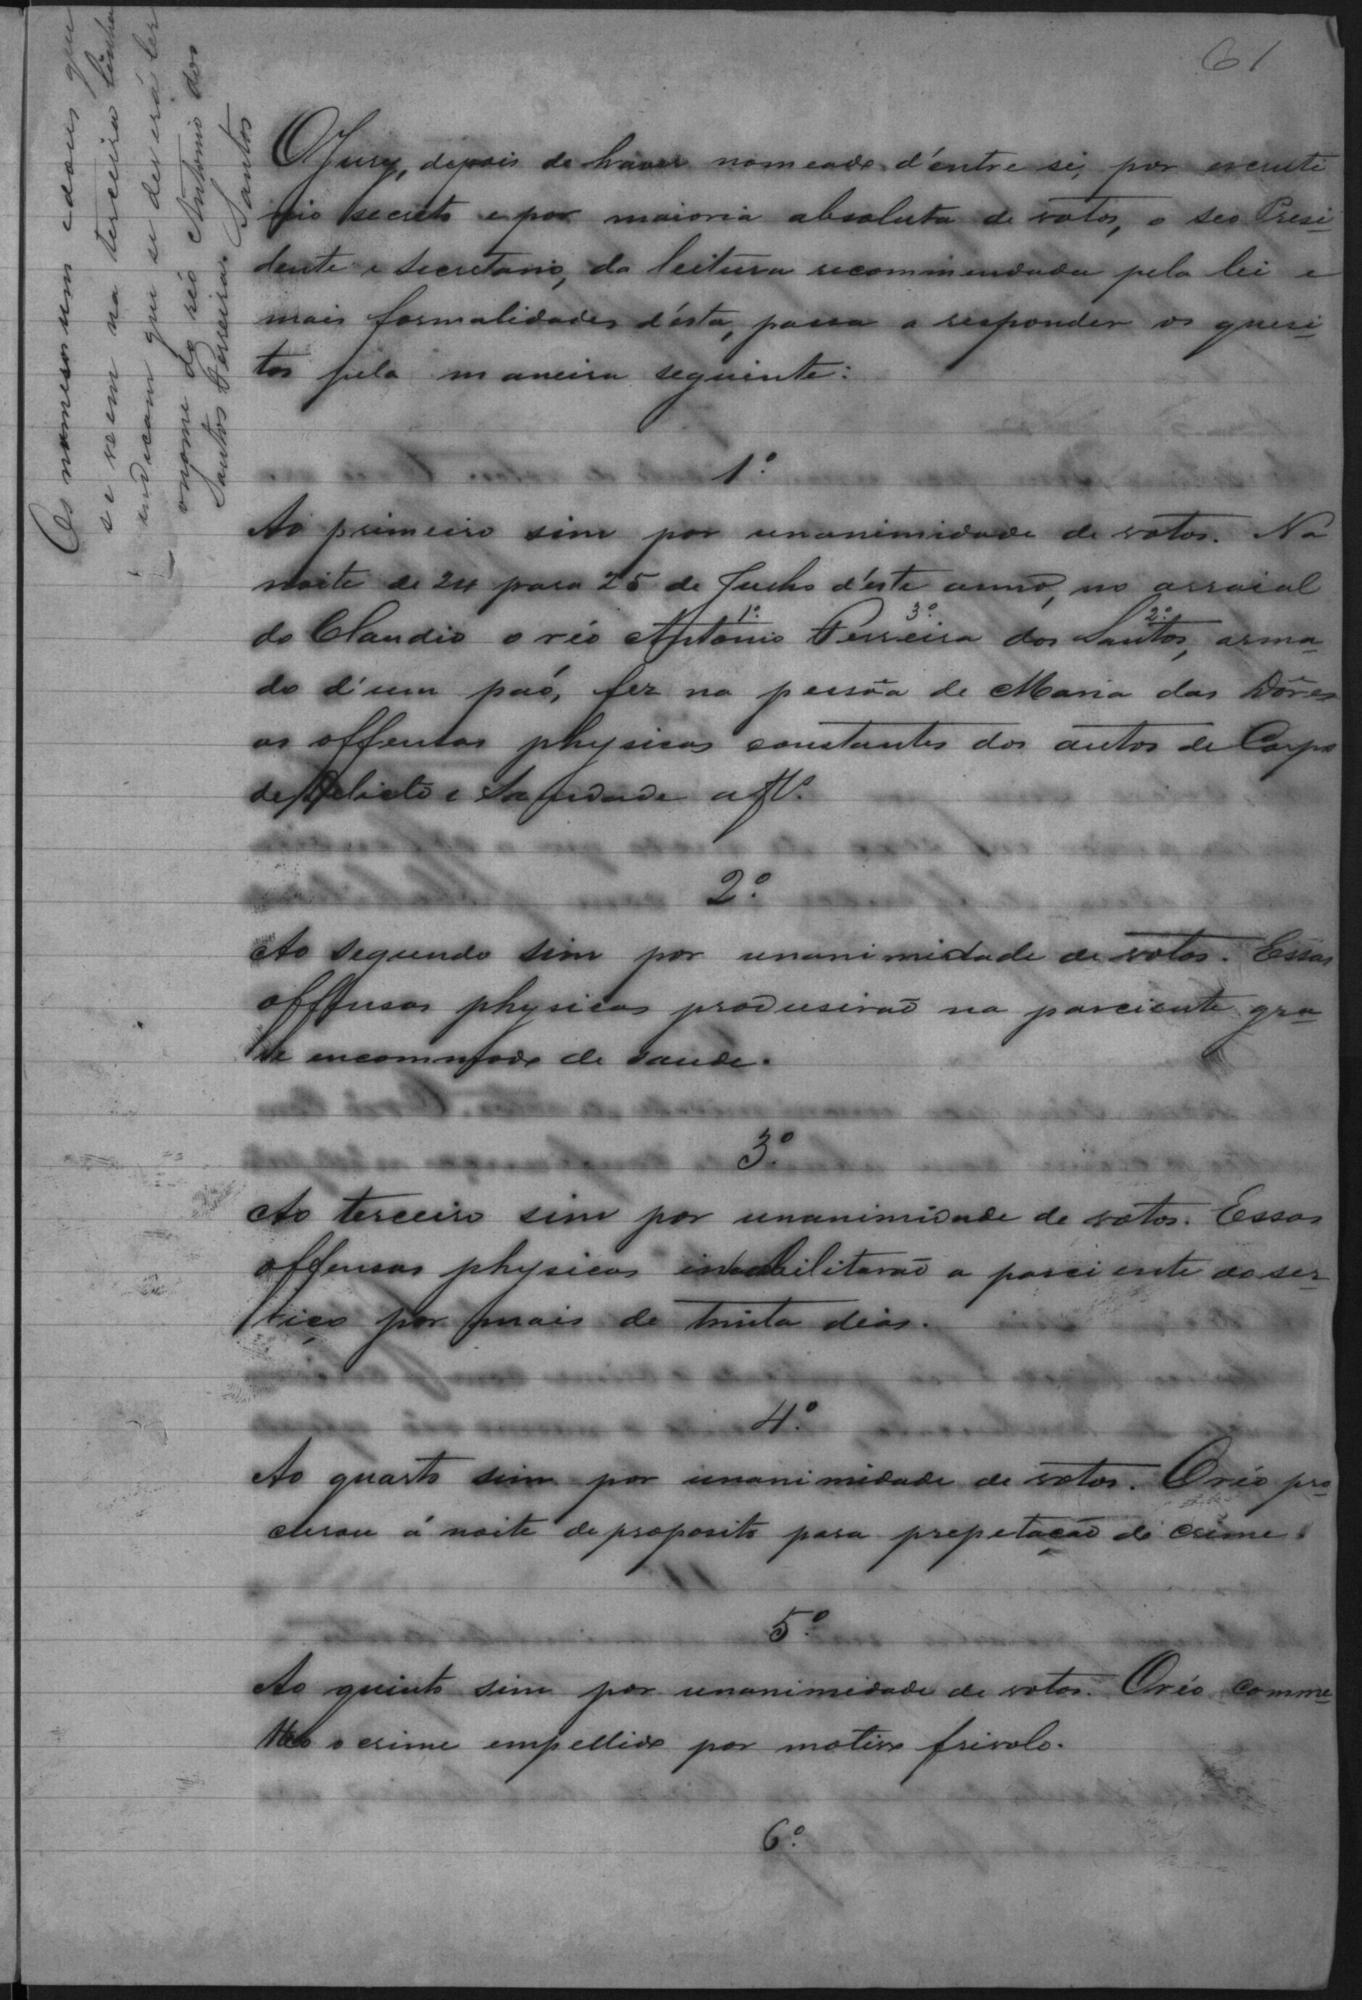 61
Os numeros um e dous que
se veem na terceira linha
indicam que se deverá ler
o nome do réo Antonio dos
Santos Ferreira. Santos
O Jury, depois de haver nomeado d'entre si, por escruti
nio secreto e por maioria absoluta de votos, o seo Presi-
dente e secretario, da leitura recommendada pela lei e
mais formalidades d'esta, passa a responder os quesi-
tos pela maneira seguinte:
1º
Ao primeiro sim por unanimidade de votos. Na
noite de 24 para 25 de Junho d'este anno, no arraial
1º. 3º. 2º.
do Claudio o réo Antonio Ferreira dos Santos, arma-
do d'um paó, fez na pessôa de Maria das Dôres
as offensas physicas constantes dos autos de Corpo
de Delicto e Sanidade a fl.
2º
Ao segundo sim por unanimidade de votos. Essas
offensas physicas produsiraõ na parciente gra-
ve encommodo de saude.
3º
Ao terceiro sim por unanimidade de votos. Essas
offensas physicas inhabilitaraõ a parciente do ser-
viço por mais de trinta dias.
4º
Ao quarto sim por unanimidade de votos. O réo pro
curou á noite de proposito para prepetaçaõ do crime.
5º
Ao quinto sim por unanimidade de votos. O réo comme-
tteo o crime empellido por motivo frivolo.
6º